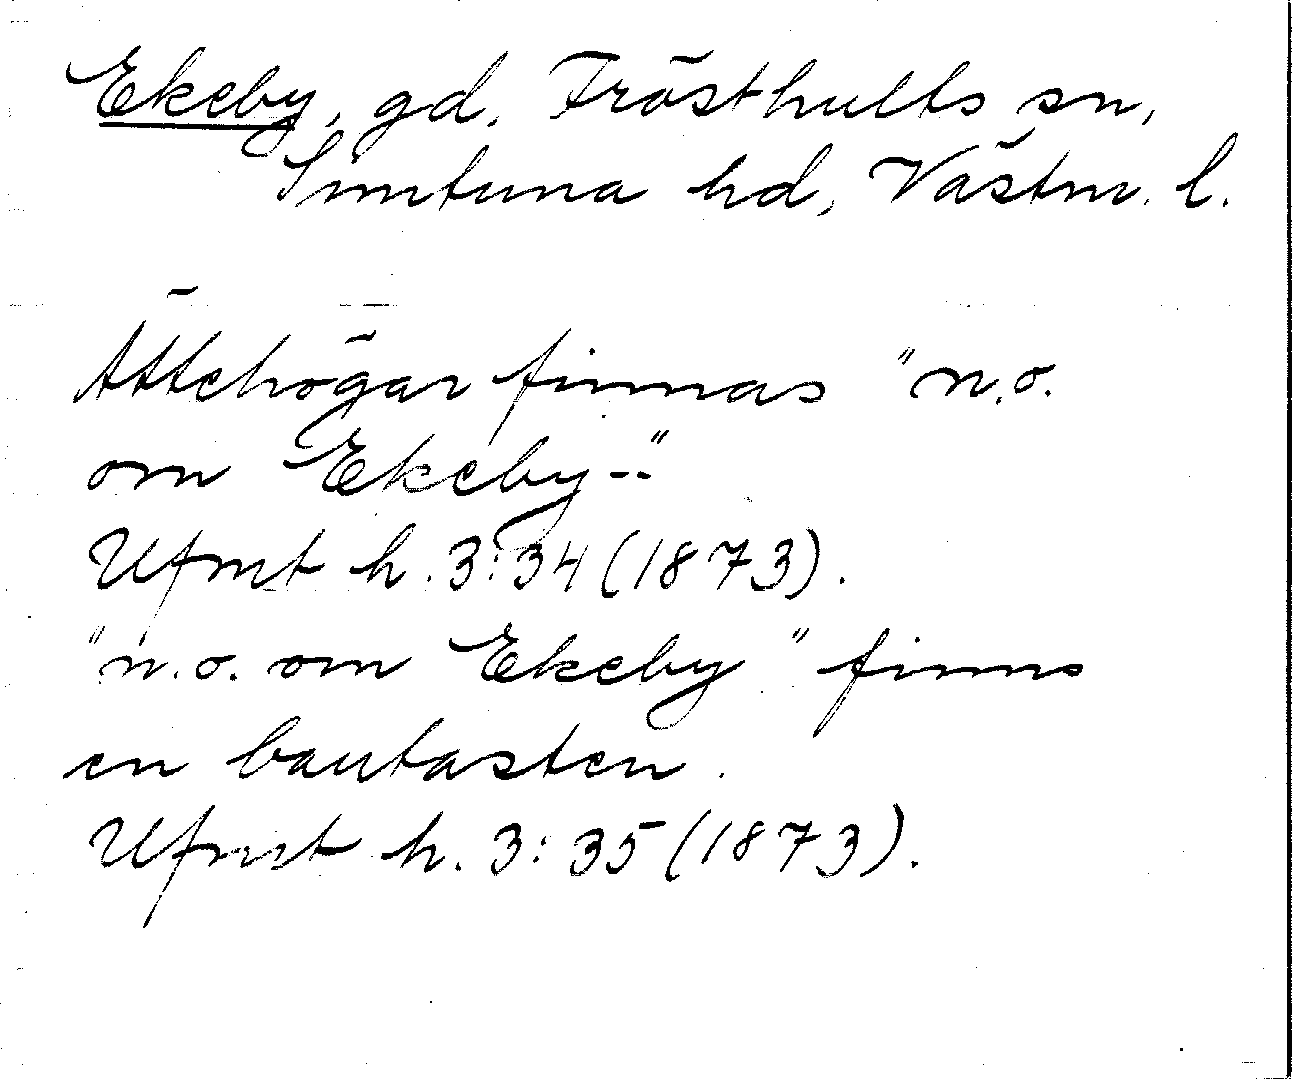 Ekeby, gd, Frösthults sn,
Simtuna hd, Västm. l.
Ättehögar finnas "n.o.
om Ekeby--"
Ufmt h. 3:34 (1873).
"n.o. om Ekeby" finns
en bautasten.
Ufmt h. 3:35 (1873).